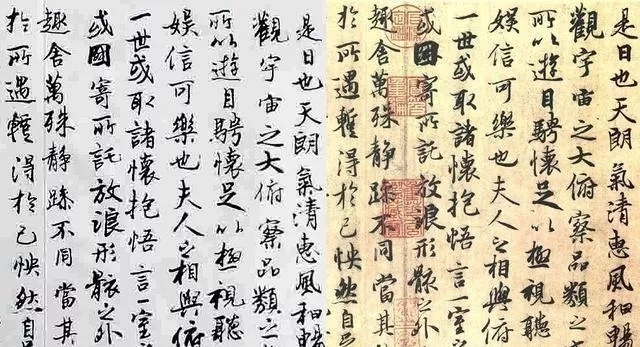 是日也天朗氣清惠風和暢
觀宇宙之大俯察品類之
所以遊目騁懷足以極視聽
娛信可樂也夫人之相與俯
一世或取諸懷抱悟言一室
或因寄所託放浪形骸之外
趣舍萬殊靜躁不同當其
於所遇暫得於己怏然自
是日也天朗氣清惠風和暢
觀宇宙之大俯察品類之
所以遊目騁懷足以極視聽
娛信可樂也夫人之相與俯
一世或取諸懷抱悟言一室
或因寄所託放浪形骸之外
趣舍萬殊靜躁不同當其
於所遇暫得於己怏然自